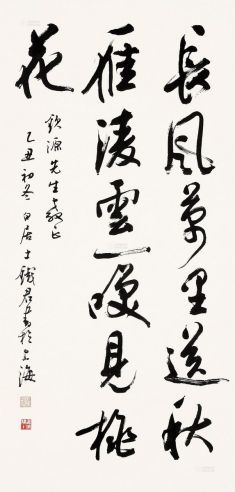 長風萬里送秋
雁淩雲一咲見桃
花
欽源先生教正
乙丑初冬居士鐵君書於上海